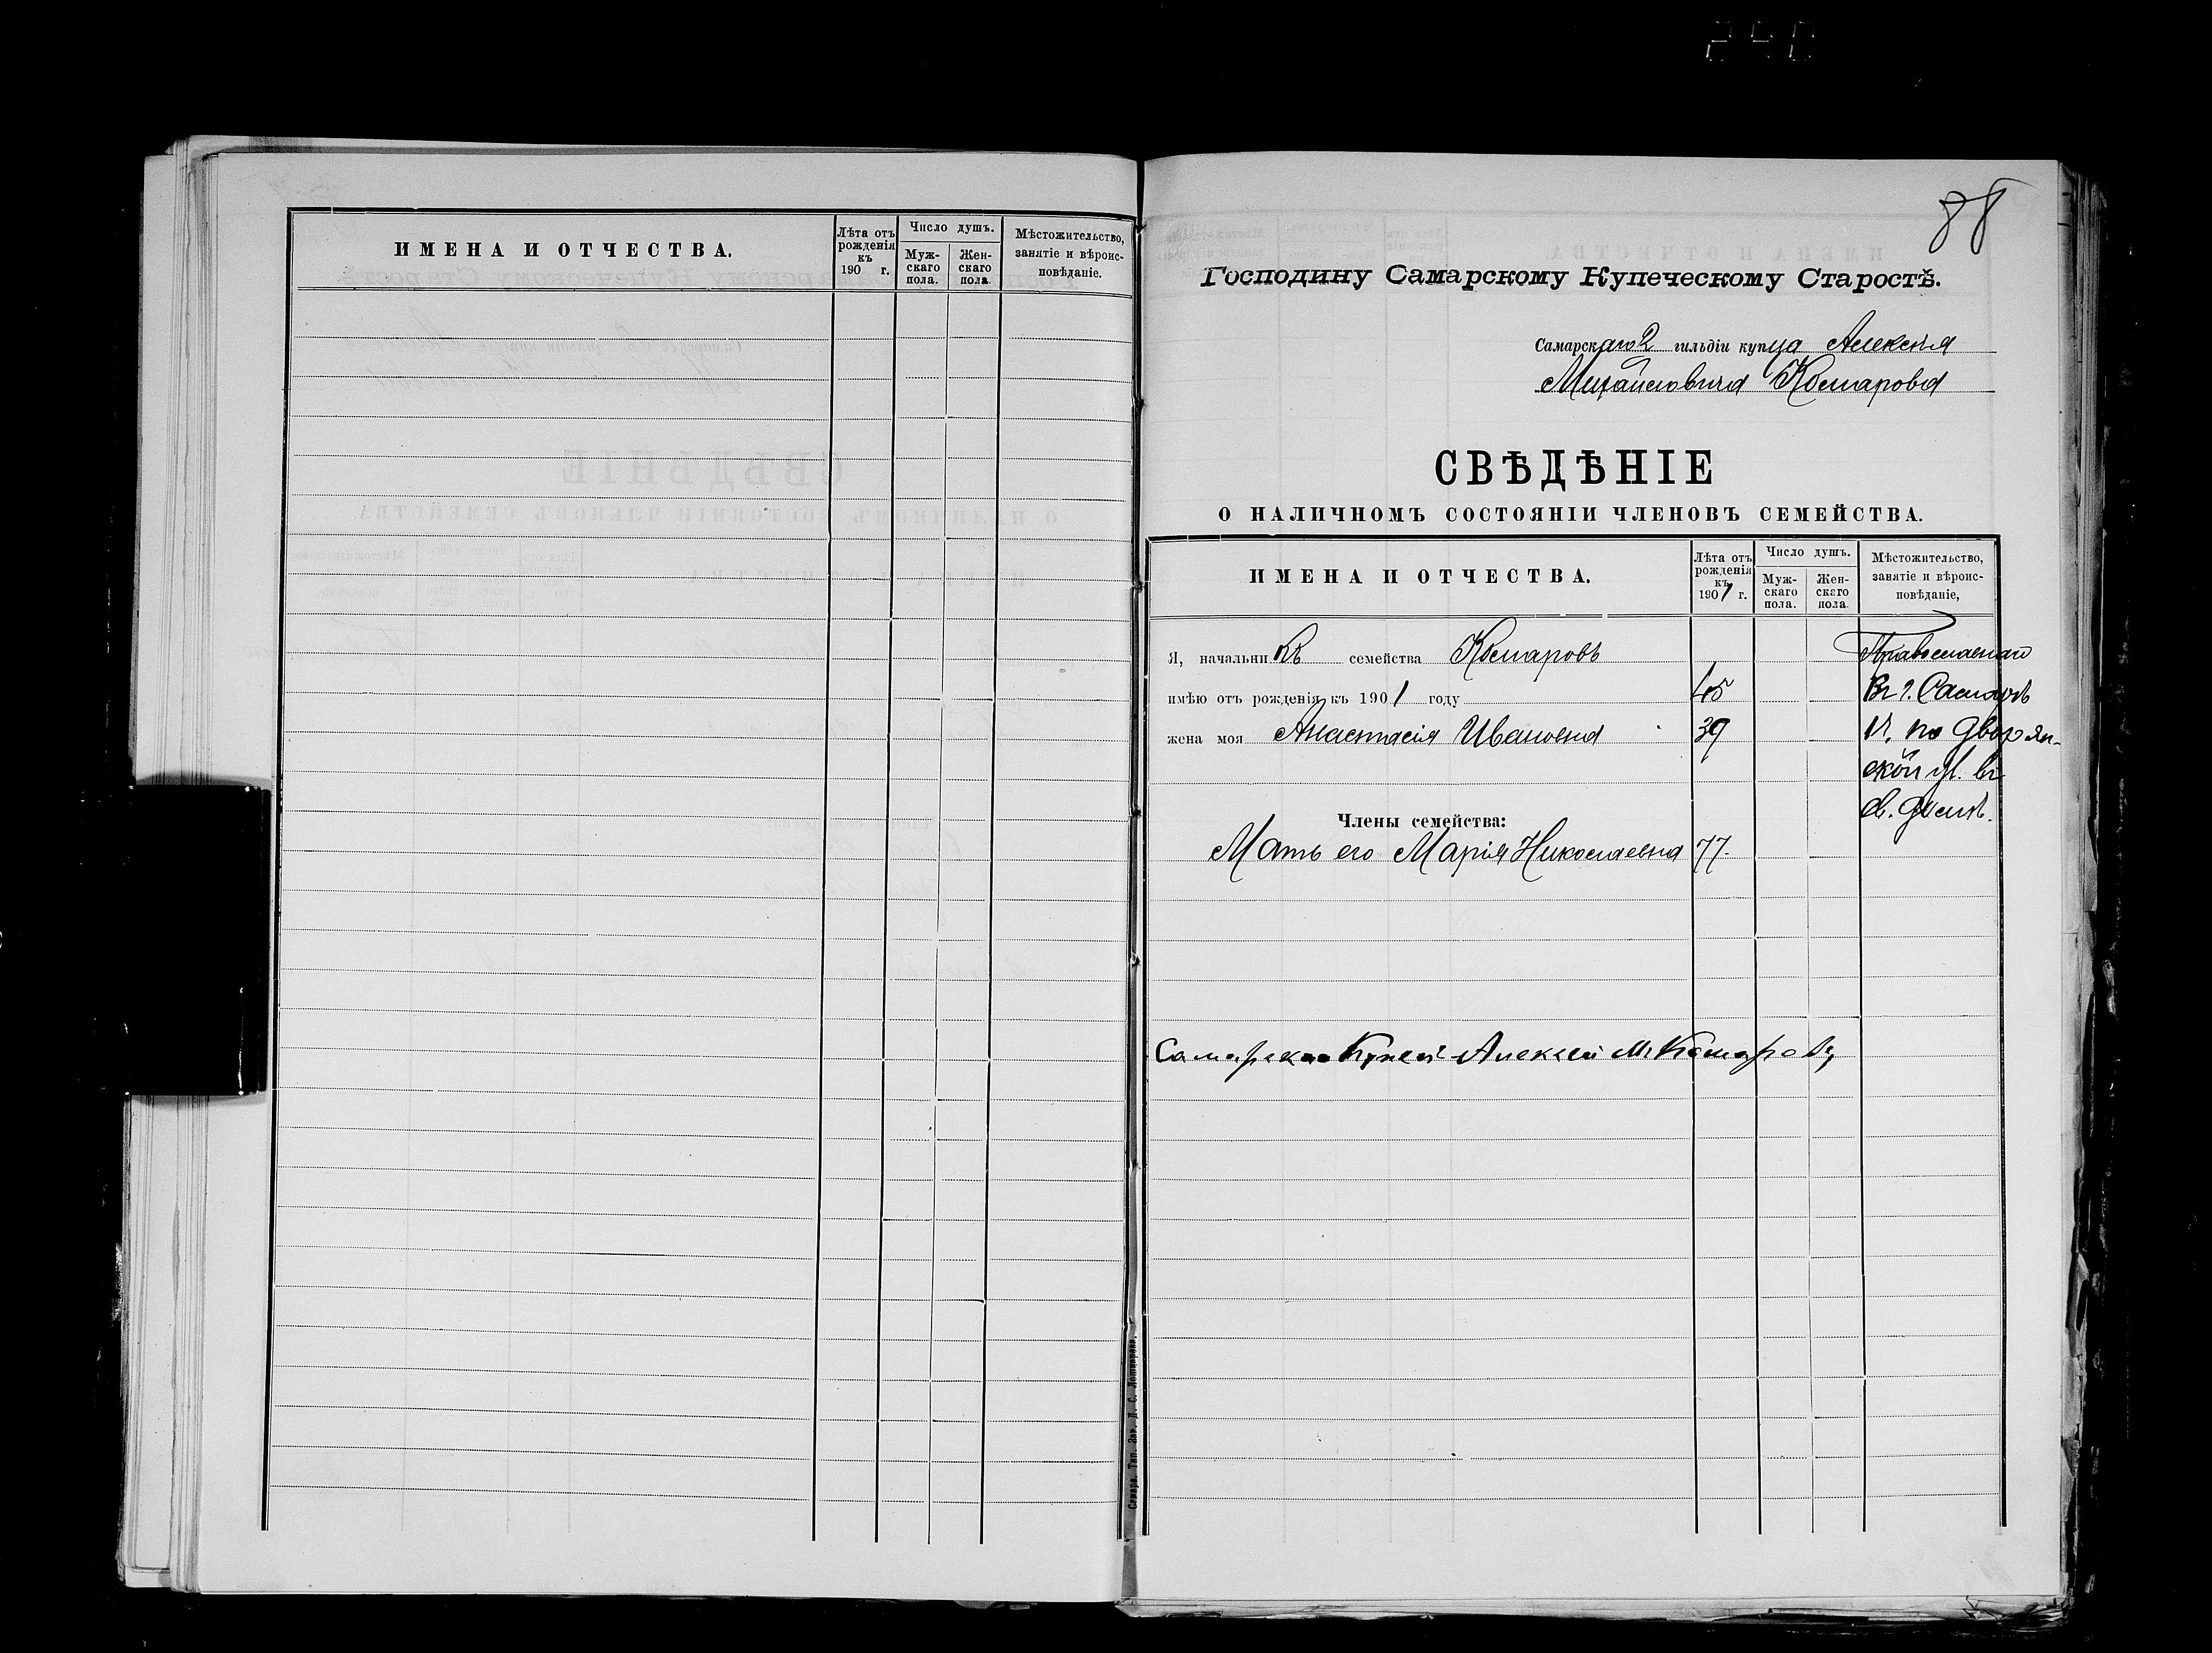 ИМЕНА И ОТЧЕСТВА.
Лѣта отъ рожденія къ 190 г.
Число душъ.
Муж-скаго пола.
Жен-скаго пола.
Мѣстожительство, занятіе и вѣроис-повѣданіе.
Самара. Тип. Д. С.
88
Господину Самарскому Купеческому Старостѣ.
Самарскаго 2 гильдіи купца Алексѣя
Михайловича Комарова
СВѢДѢНІЕ
О НАЛИЧНОМЪ СОСТОЯНІИ ЧЛЕНОВЪ СЕМЕЙСТВА.
ИМЕНА И ОТЧЕСТВА.
Лѣта отъ рожденія къ 1901 г.
Число душъ.
Муж-скаго пола.
Жен-скаго пола.
Мѣстожительство, занятіе и вѣроис-повѣданіе,
Я, начальникъ семейства Комаровъ
имѣю отъ рожденія къ 1901 году 45
жена моя Анастасія Ивановна 39
Въ г. Самарѣ
по Дворян-
ской ул. въ
св. домѣ.
Члены семейства:
Мать его Марія Николаевна 77.
Алексей М. Комаровъ
240